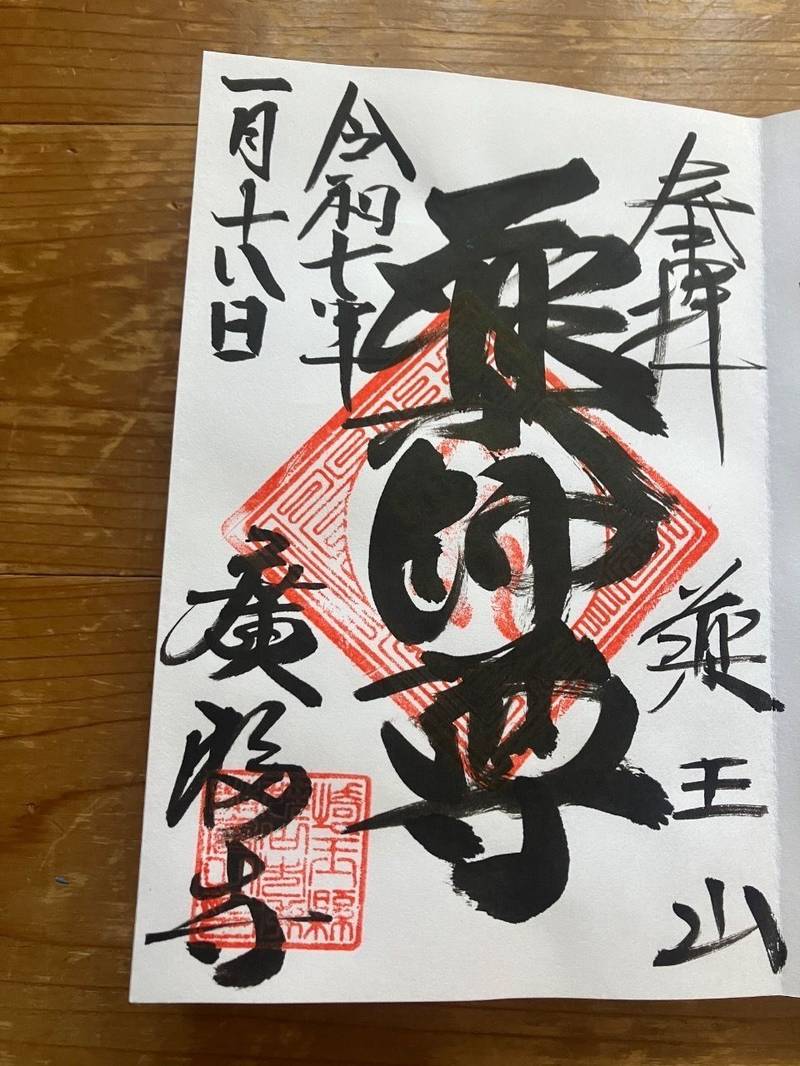 奉拝
薬王山
薬師尊
令和七年
一月十八日
廣 寺
埼玉縣